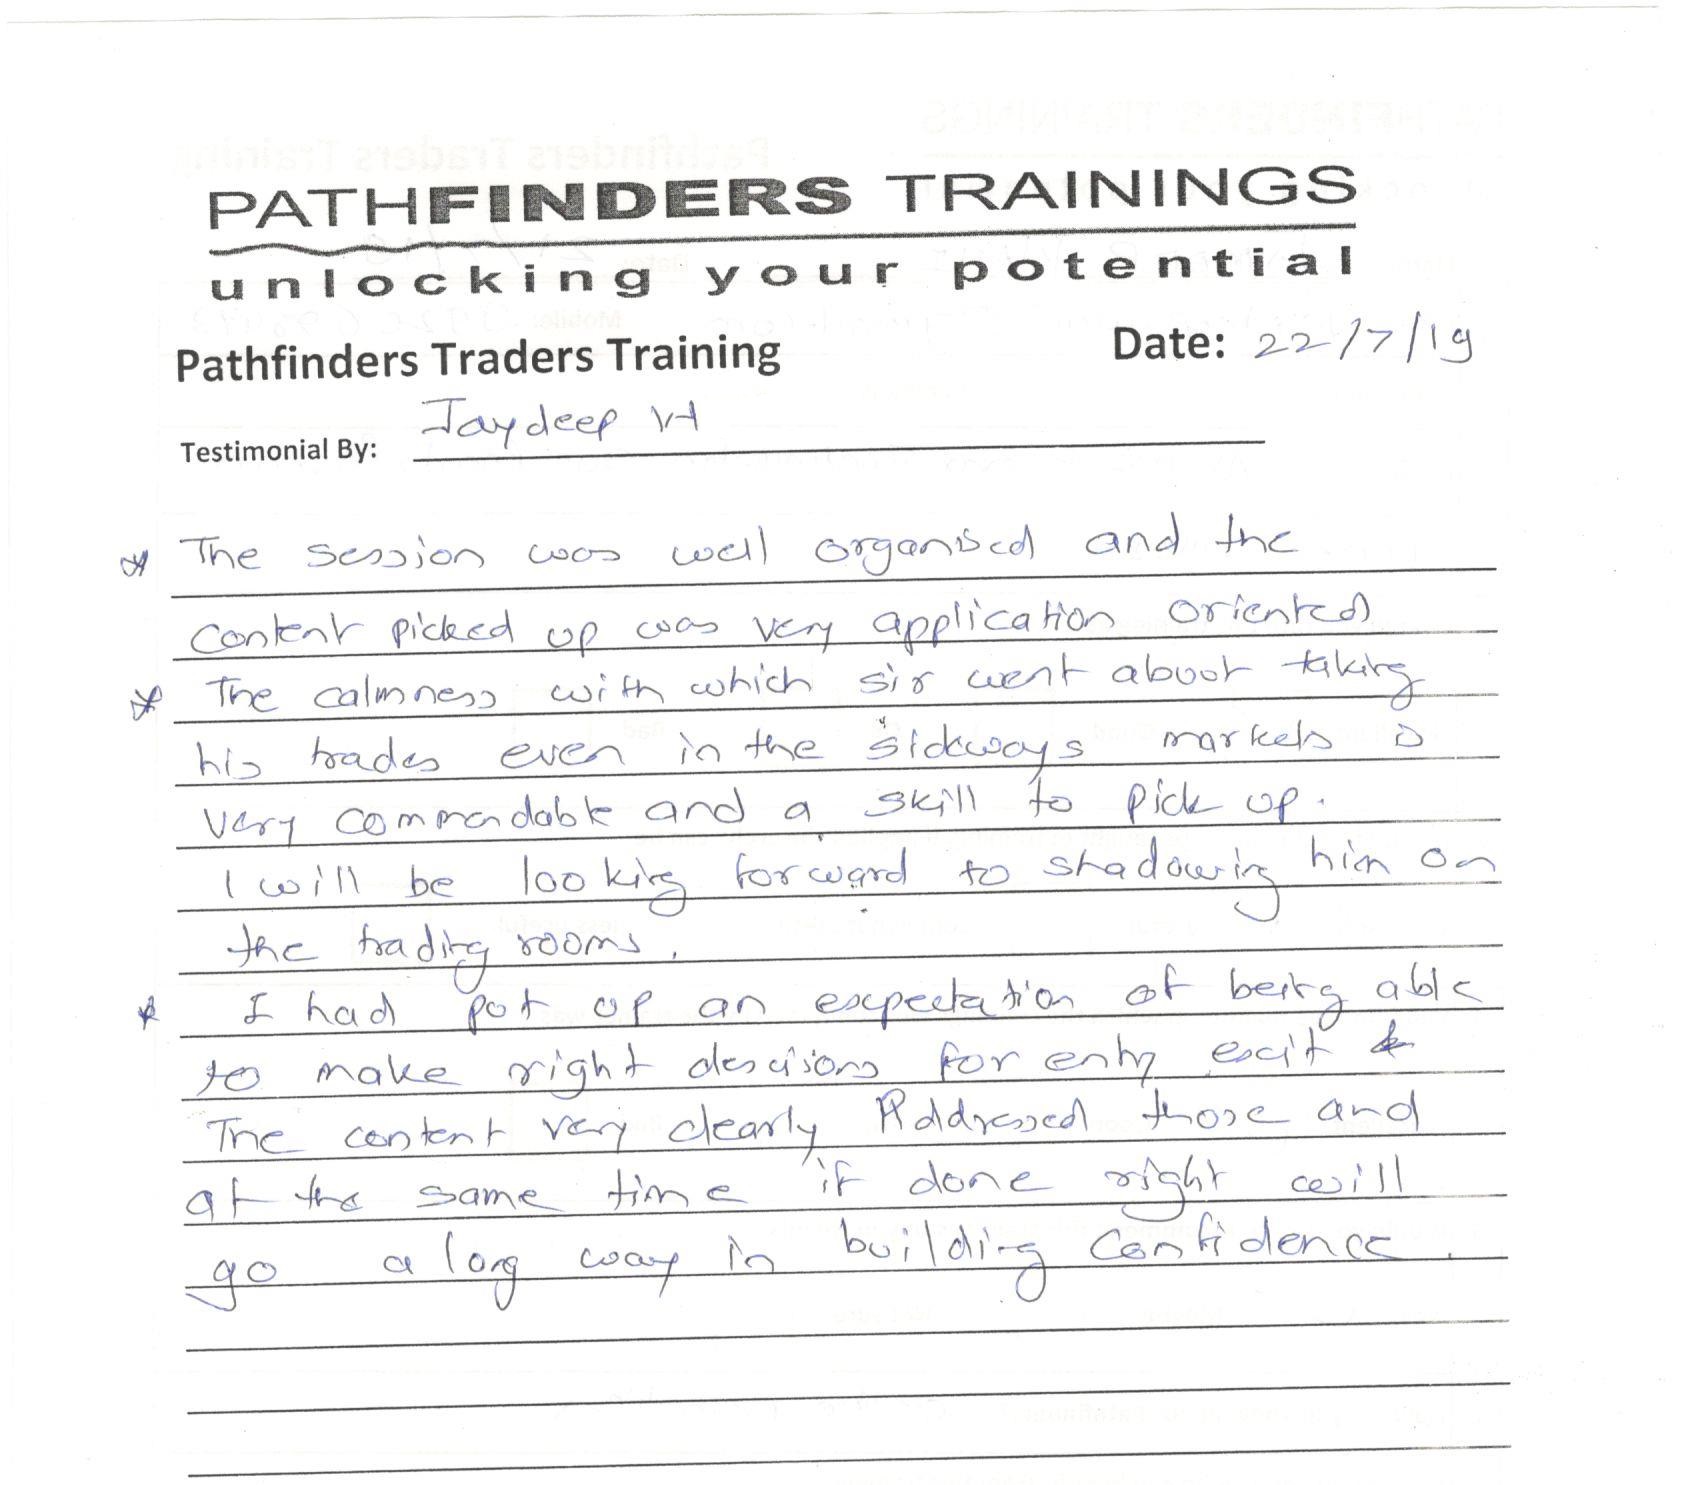 PATHFINDERS TRAININGS
unlocking your potential
Pathfinders Traders Training Date: 22/7/19
Testimonial By: Jaydeep VH
* The session was well organised and the
content picked up was very application oriented
* The calmness with which sir went about taking
his trades even in the sideways markets is
very commendable and a skill to pick up.
I will be looking forward to shadowing him on
the trading rooms.
* I had put up an expectation of being able
to make right descisions for entry exit &
The content very clearly Addressed those and
at the same time if done right will
go a long way in building confidence.